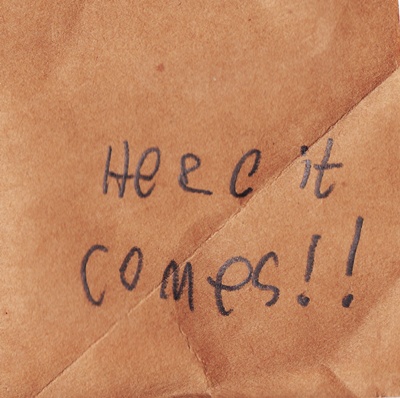 Here it
comes!!